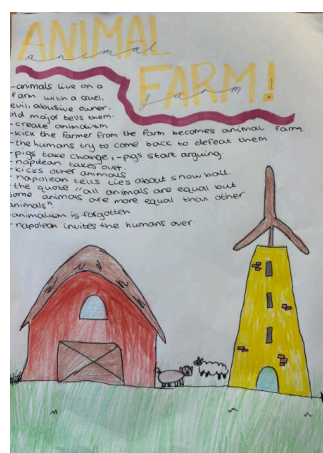 ANIMAL
animal
FARM!
farm
-animals live on a
farm with a cruel,
evil, abusive owner.
old major tells them
-create animalism
-kick the farmer from the farm becomes animal farm.
-the humans try to come back to defeat them
-pigs take charge, -pigs start arguing
-napolean takes over
-kicks other animals
-napolean tells lies about snow ball
-the quote "all animals are equal but
some animals are more equal than other
animals"
-animalism is forgotten
-napolean invites the humans over